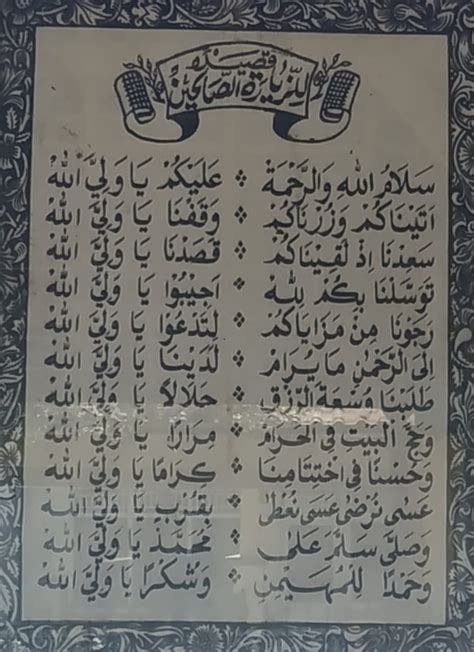 قصيدة
للزيارة الصالحين
سَلَامُ اللهِ وَالرَّحْمَةْ ❖ عَلَيْكُمْ يَا وَلِيَّ اللهْ
اَتَيْنَاكُمْ وَزُرْنَاكُمْ ❖ وَقَفْنَا يَا وَلِيَّ اللهْ
سَعِدْنَا اِذْ لَقِيْنَاكُمْ ❖ قَصَدْنَا يَا وَلِيَّ اللهْ
تَوَسَّلْنَا بِكُمْ لِلّٰهْ ❖ اَجِيْبُوْا يَا وَلِيَّ اللهْ
رَجَوْنَا مِنْ مَزَايَاكُمْ ❖ لِتَدْعُوْا يَا وَلِيَّ اللهْ
اِلَى الرَّحْمٰنِ مَا يُرَامْ ❖ لَدَيْنَا يَا وَلِيَّ اللهْ
طَلَبْنَا وُسْعَةَ الرِّزْقِ ❖ حَلَالًا يَا وَلِيَّ اللهْ
وَحَجَّ الْبَيْتِ فِي الْحَرَامْ ❖ مِرَارًا يَا وَلِيَّ اللهْ
وَحُسْنًا فِي اخْتِتَامِنَا ❖ كِرَامًا يَا وَلِيَّ اللهْ
عَسٰى نُرْضٰى عَسٰى نُعْطٰى ❖ بِقُرْبٍ يَا وَلِيَّ اللهْ
وَصَلَّى سَلَّمَ عَلٰى ❖ مُحَمَّدْ يَا وَلِيَّ اللهْ
وَحَمْدًا لِلْمُهَيْمِنِ ❖ وَشُكْرًا يَا وَلِيَّ اللهْ